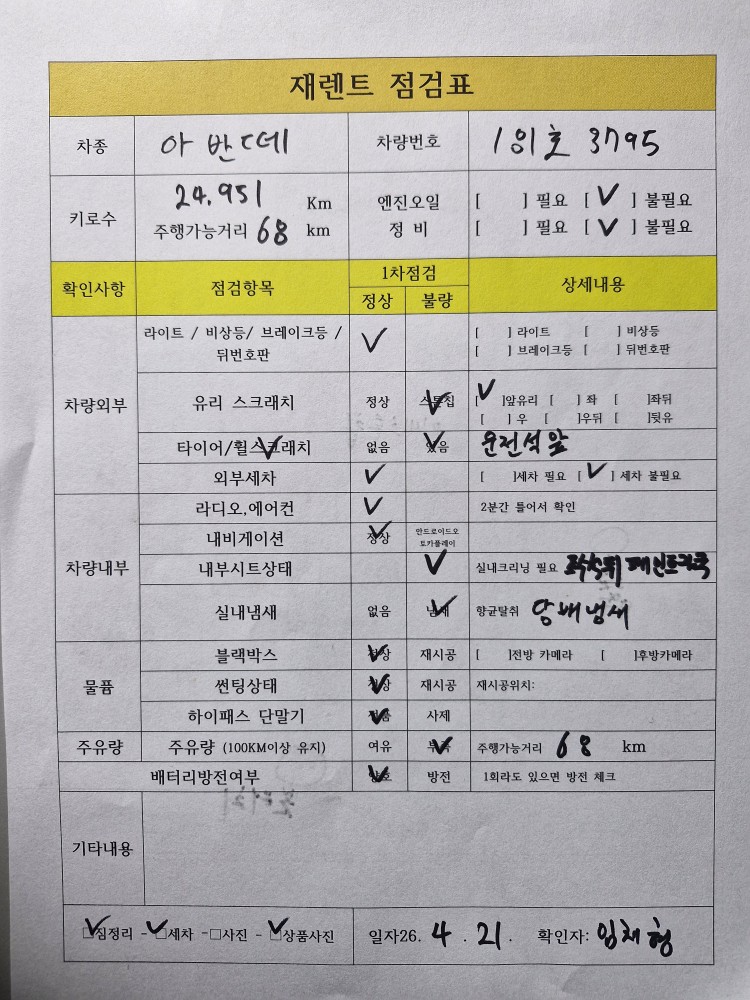 재렌트 점검표
차종 아반떼 차량번호 131호 3795
키로수 24.951 Km 엔진오일 [ ] 필요 [ ✓ ] 불필요
주행가능거리 68 km 정 비 [ ] 필요 [ ✓ ] 불필요
확인사항 점검항목 1차점검 상세내용
정상 불량
차량외부 라이트 / 비상등/ 브레이크등 / ✓ [ ] 라이트 [ ] 비상등
뒤번호판 [ ] 브레이크등 [ ] 뒤번호판
유리 스크래치 정상 스톤칩 ✓ [ ✓ ]앞유리 [ ] 좌 [ ]좌뒤
[ ] 우 [ ]우뒤 [ ]뒷유
타이어/휠스크래치 ✓ 없음 있음 ✓ 운전석 앞
외부세차 ✓ [ ]세차 필요 [ ✓ ] 세차 불필요
차량내부 라디오,에어컨 ✓ 2분간 틀어서 확인
내비게이션 정상 ✓ 안드로이드오
토카플레이
내부시트상태 ✓ 실내크리닝 필요
실내냄새 없음 냄새 ✓ 향균탈취 담배냄새
물품 블랙박스 정상 ✓ 재시공 [ ]전방 카메라 [ ]후방카메라
썬팅상태 정상 ✓ 재시공 재시공위치:
하이패스 단말기 정품 ✓ 사제
주유량 주유량 (100KM이상 유지) 여유 부족 ✓ 주행가능거리 68 km
배터리방전여부 양호 ✓ 방전 1회라도 있으면 방전 체크
기타내용
☑짐정리 - ☑세차 -□사진 - ☑상품사진 일자26. 4 . 21 . 확인자: 임채형